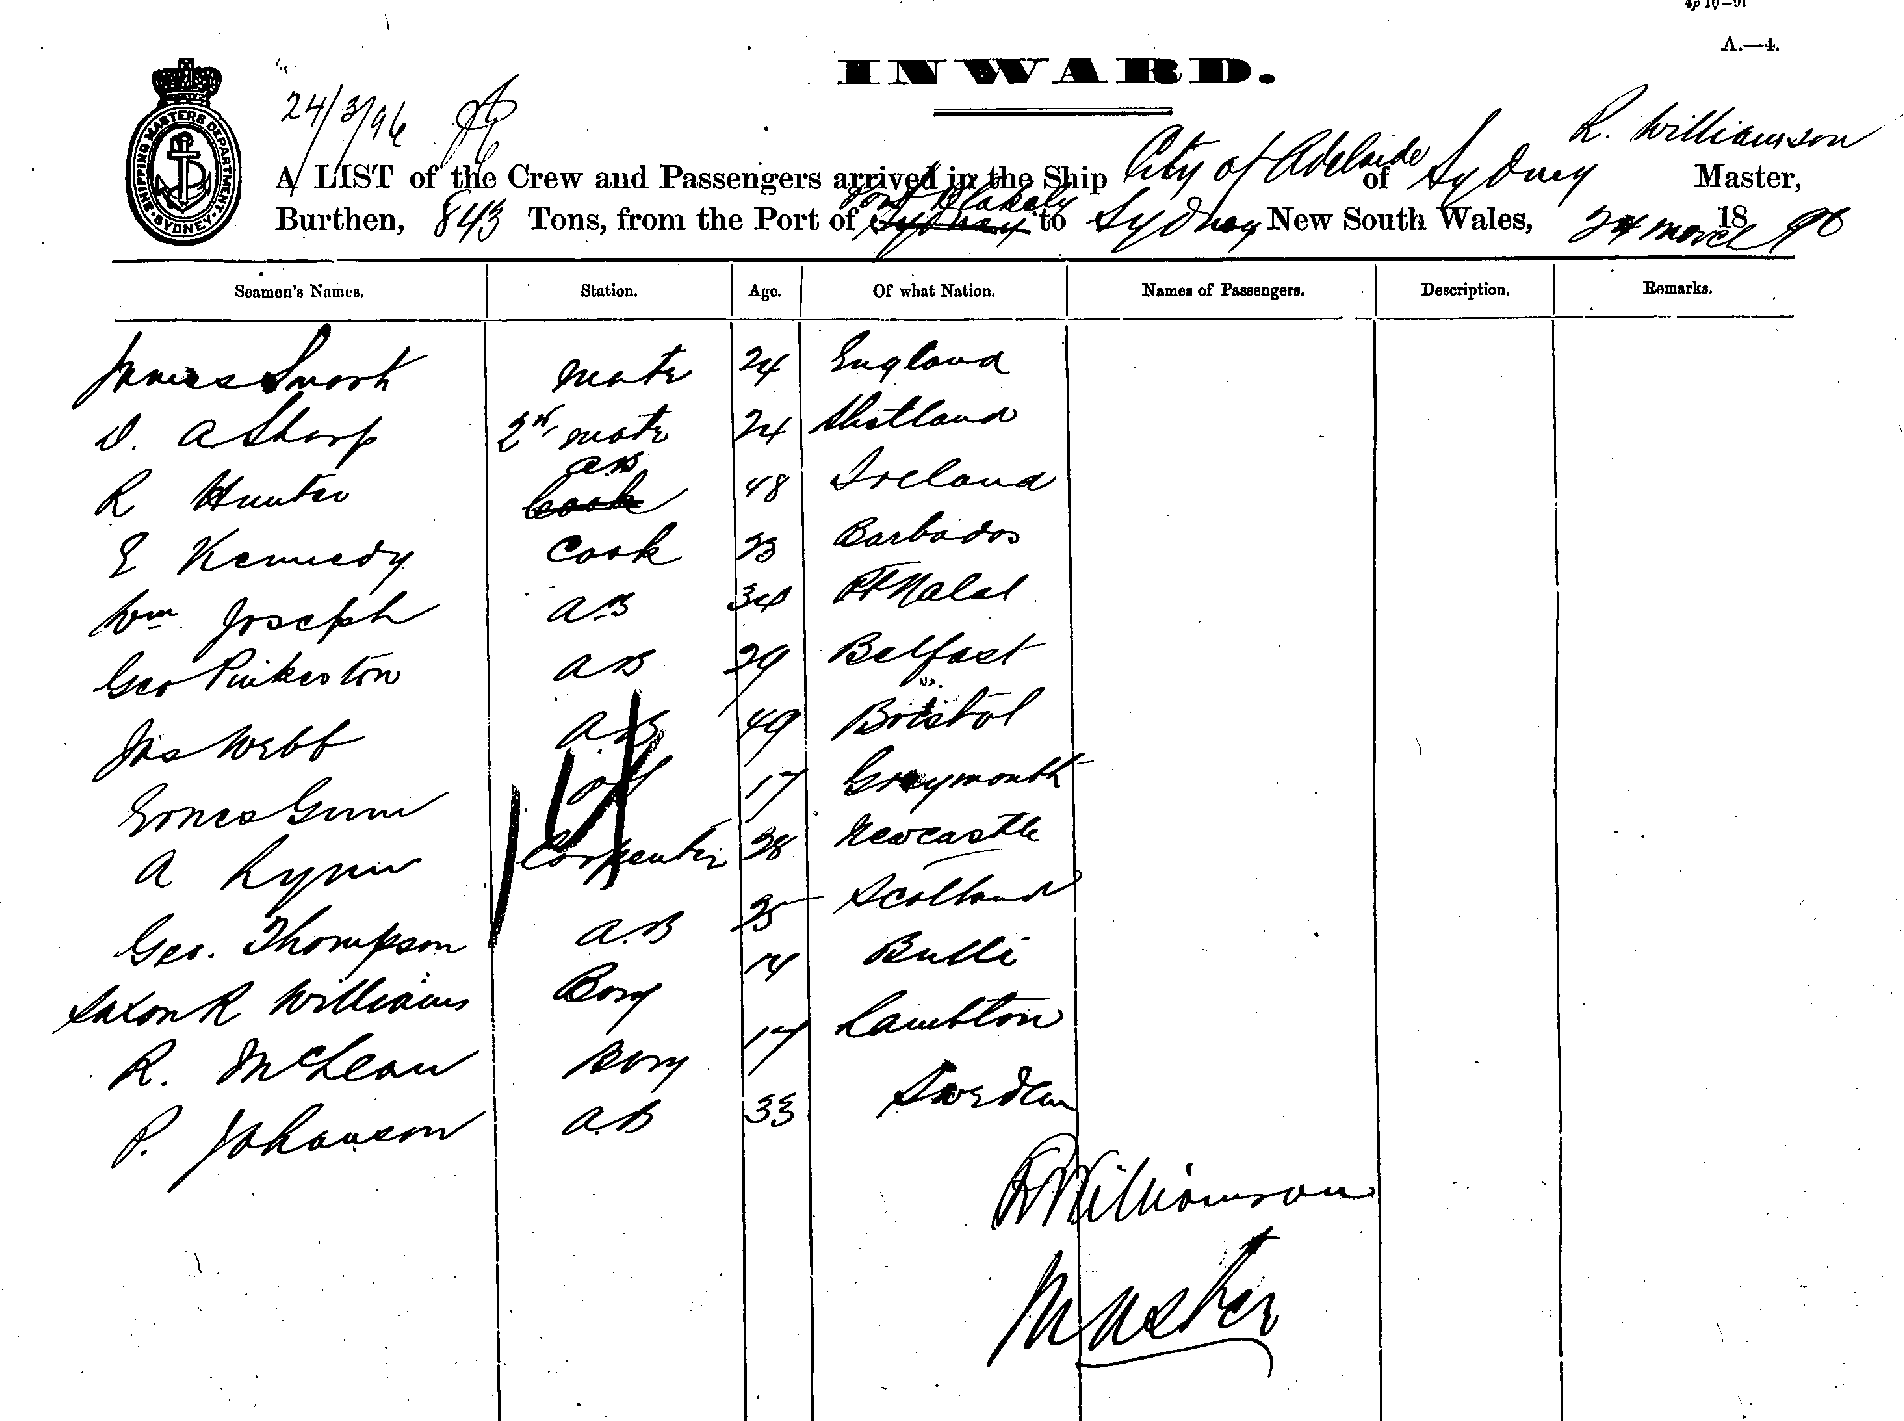 4p 10—91
A.—4.
INWARD.
24/3/96
SHIPPING MASTERS DEPARTMENT
SYDNEY
R. Williamson
A LIST of the Crew and Passengers arrived in the Ship City of Adelaide of Sydney Master,
Burthen, 843 Tons, from the Port of Port Blakely Sydney to Sydney New South Wales, 24 March 1896
Seamen's Names. Station. Age. Of what Nation. Names of Passengers. Description. Remarks.
James mate 24 England
D. A Sharp 2nd mate 24 Shetland
R Hunter AB Cook 48 Ireland
E Kennedy Cook 23 Barbados
Wm Joseph AB 34 Pt Natal
Geo Pinkerton AB 29 Belfast
Jas Webb AB 49 Bristol
Gunn 17 Greymouth
A Lynn Carpenter 28 Newcastle
Geo. Thompson A.B 25 Scotland
Saxon R Williams Boy 14 Bulli
R. McLean Boy 17 Lambton
P. Johanson A.B 33 Sweden
R Williamson
Master